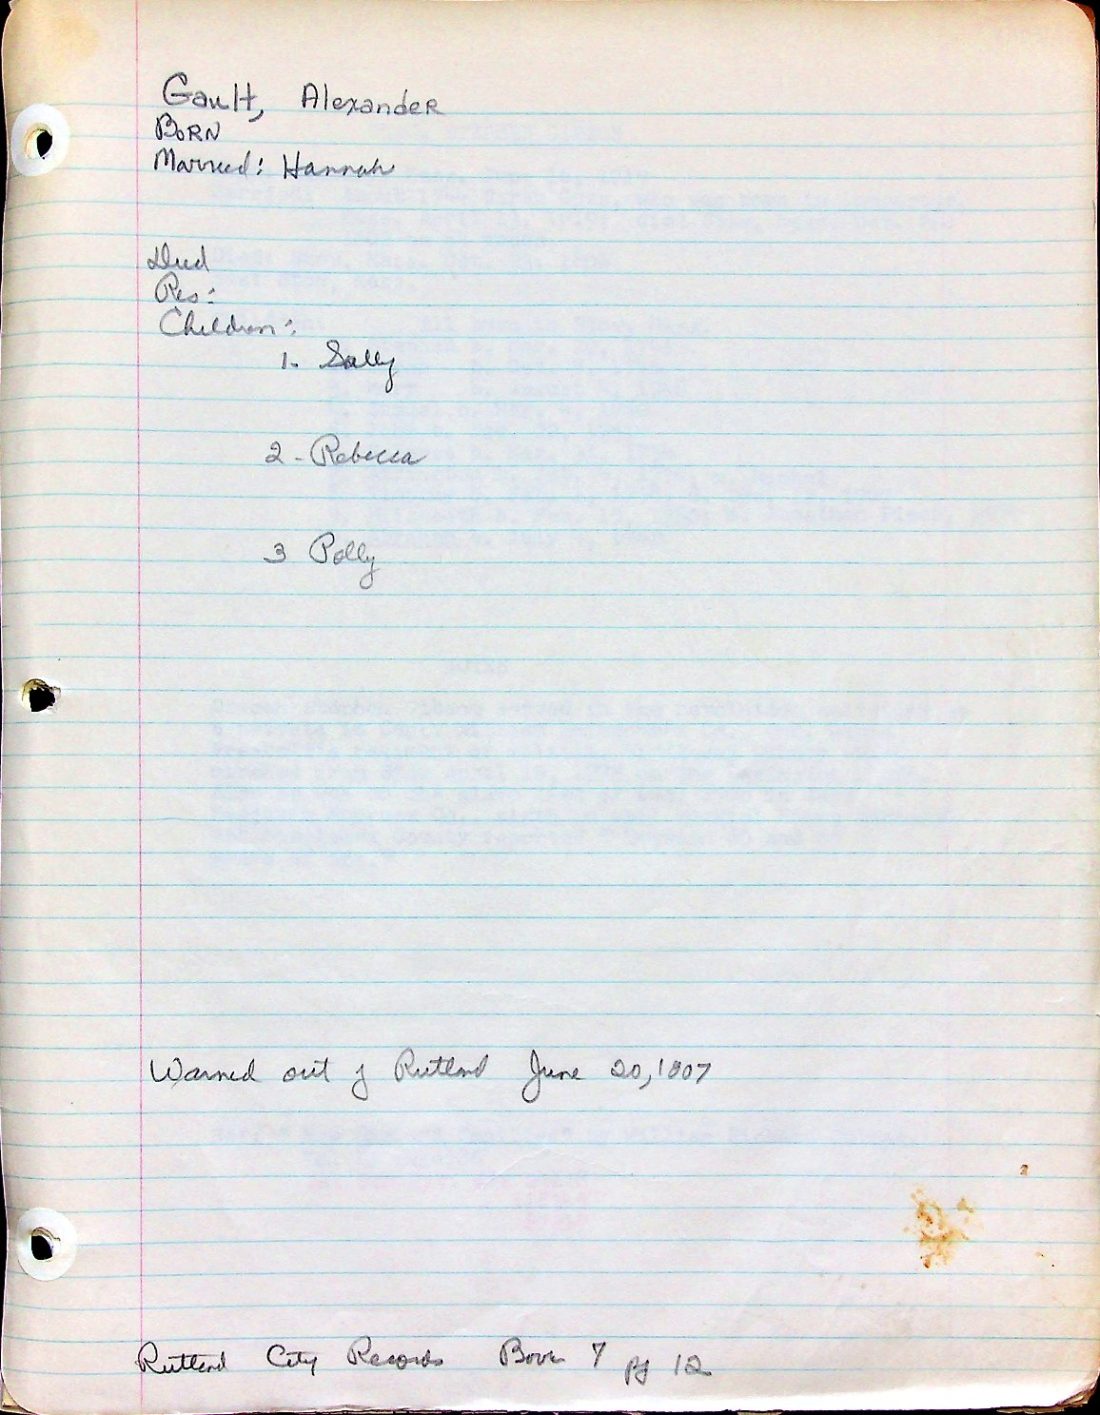 Gault, Alexander
BORN
Married: Hannah
Died
Res:
Children:
1. Sally
2 - Rebecca
3 Polly
Warned out of Rutland June 20, 1807
Rutland City Records Book 7 pg 12